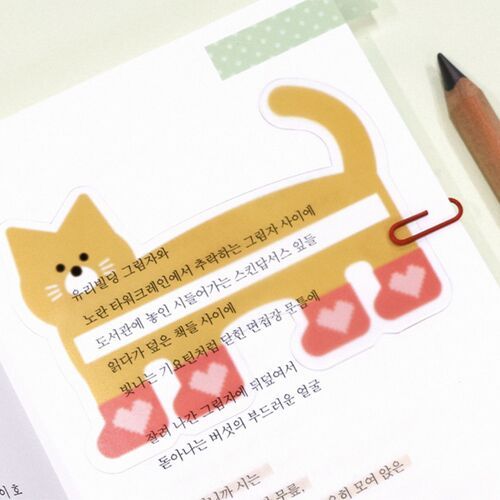 유리빌딩 그림자와
노란 타워크레인에서 추락하는 그림자 사이에
도서관에 놓인 시들어가는 스킨답서스 잎들
읽다가 덮은 책들 사이에
빛나는 기요틴처럼 닫힌 편집장 문틈에
잘려 나간 그림자에 뒤덮여서
돋아나는 버섯의 부드러운 얼굴
니까 시는
히 모여 앉은
이호